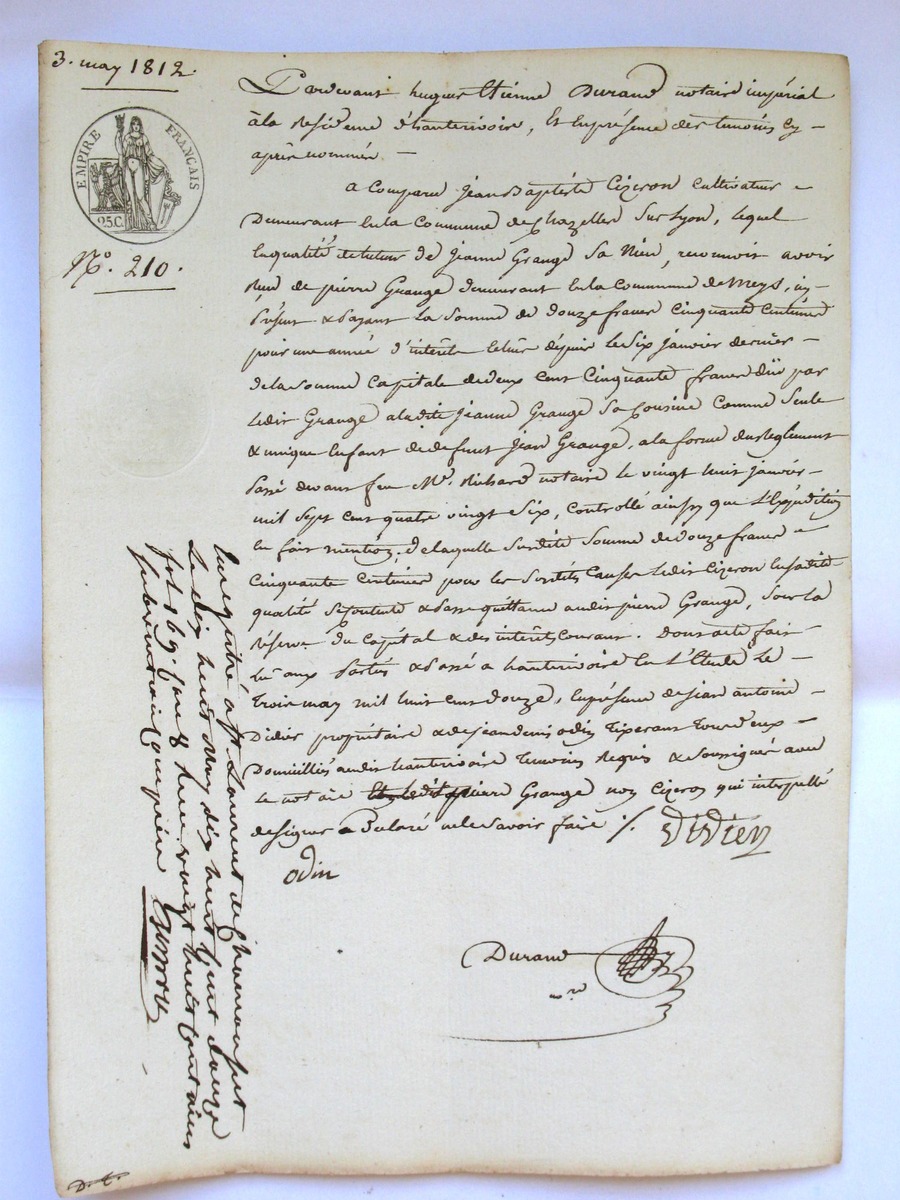 3. may 1812.
EMPIRE FRANÇAIS
25.C.
N.º 210.
Pardevant hugues Etienne Durand notaire impérial
à la Residence d'hauterivoire, Et En présence des temoins cy
après nommés
a Comparu Jean Baptiste Cizeron Cultivateur
Demeurant En la Commune de Chazelles Sur Lyon, lequel
En qualité de tuteur de Jeanne Grange Sa Niece, reconnoit avoir
Reçu de pierre Grange demeurant En la Commune de Meys, icy
Présent & Payant la Somme de douze francs Cinquante Centimes
pour une année d'interêts echue depuis le Six Janvier dernier
de la Somme Capitale de deux cent Cinquante francs due par
Ledit Grange a ladite Jeanne Grange Sa Cousine Comme Seule
& unique Enfant de defunt Jean Grange, a la forme du Reglement
Passé devant feu Me. Richard notaire le vingt huit janvier
mil Sept cent quatre vingt Six, Controllé ainsy que L'Expédition
En fait mention, de laquelle Susdite Somme de douze francs
Cinquante Centimes pour les Susdites Causes Ledit Cizeron En Sadite
qualité Se Contente & Passe quittance audit pierre Grange, Sous la
réserve du Capital & des interêts Courant. Dont acte fait
lu aux Parties & Passé a hauterivoire En L'Etude Le
Trois may mil huit Cent douze, En présence de Jean antoine
Didier propriétaire & de Jean denis odin Tixerant Tous deux
Domiciliés audit hauterivoire Temoins Requis & Soussignés avec
Le notaire pierre Grange ny Cizeron qui interpellé
de Signer a Declaré ne le Savoir faire ./.
Didier
odin
Durand
nore
Enregistré a St Laurent de Chamousset
Le dix huit may dix huit Cent douze
fol 169. Case 8 Reçu vingt huit Centimes
Subvention Comprise
D. t.